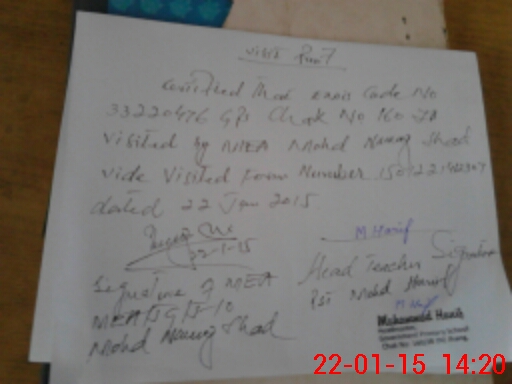 Visit Proof
Certified that emis Code No
33220476 GPS Chak No 160 JB
visited by MEA Mohd Nawaz Shad
vide Visited Form Number
dated 22 Jan 2015
22-1-15
M Hanif
Signature of MEA
Head Teacher Signature
MEA
PST Mohd Hanif
Mohd Nawaz Shad
Muhammad Hanif
Headteacher,
Government Primary School
Chak No
22-01-15 14:20